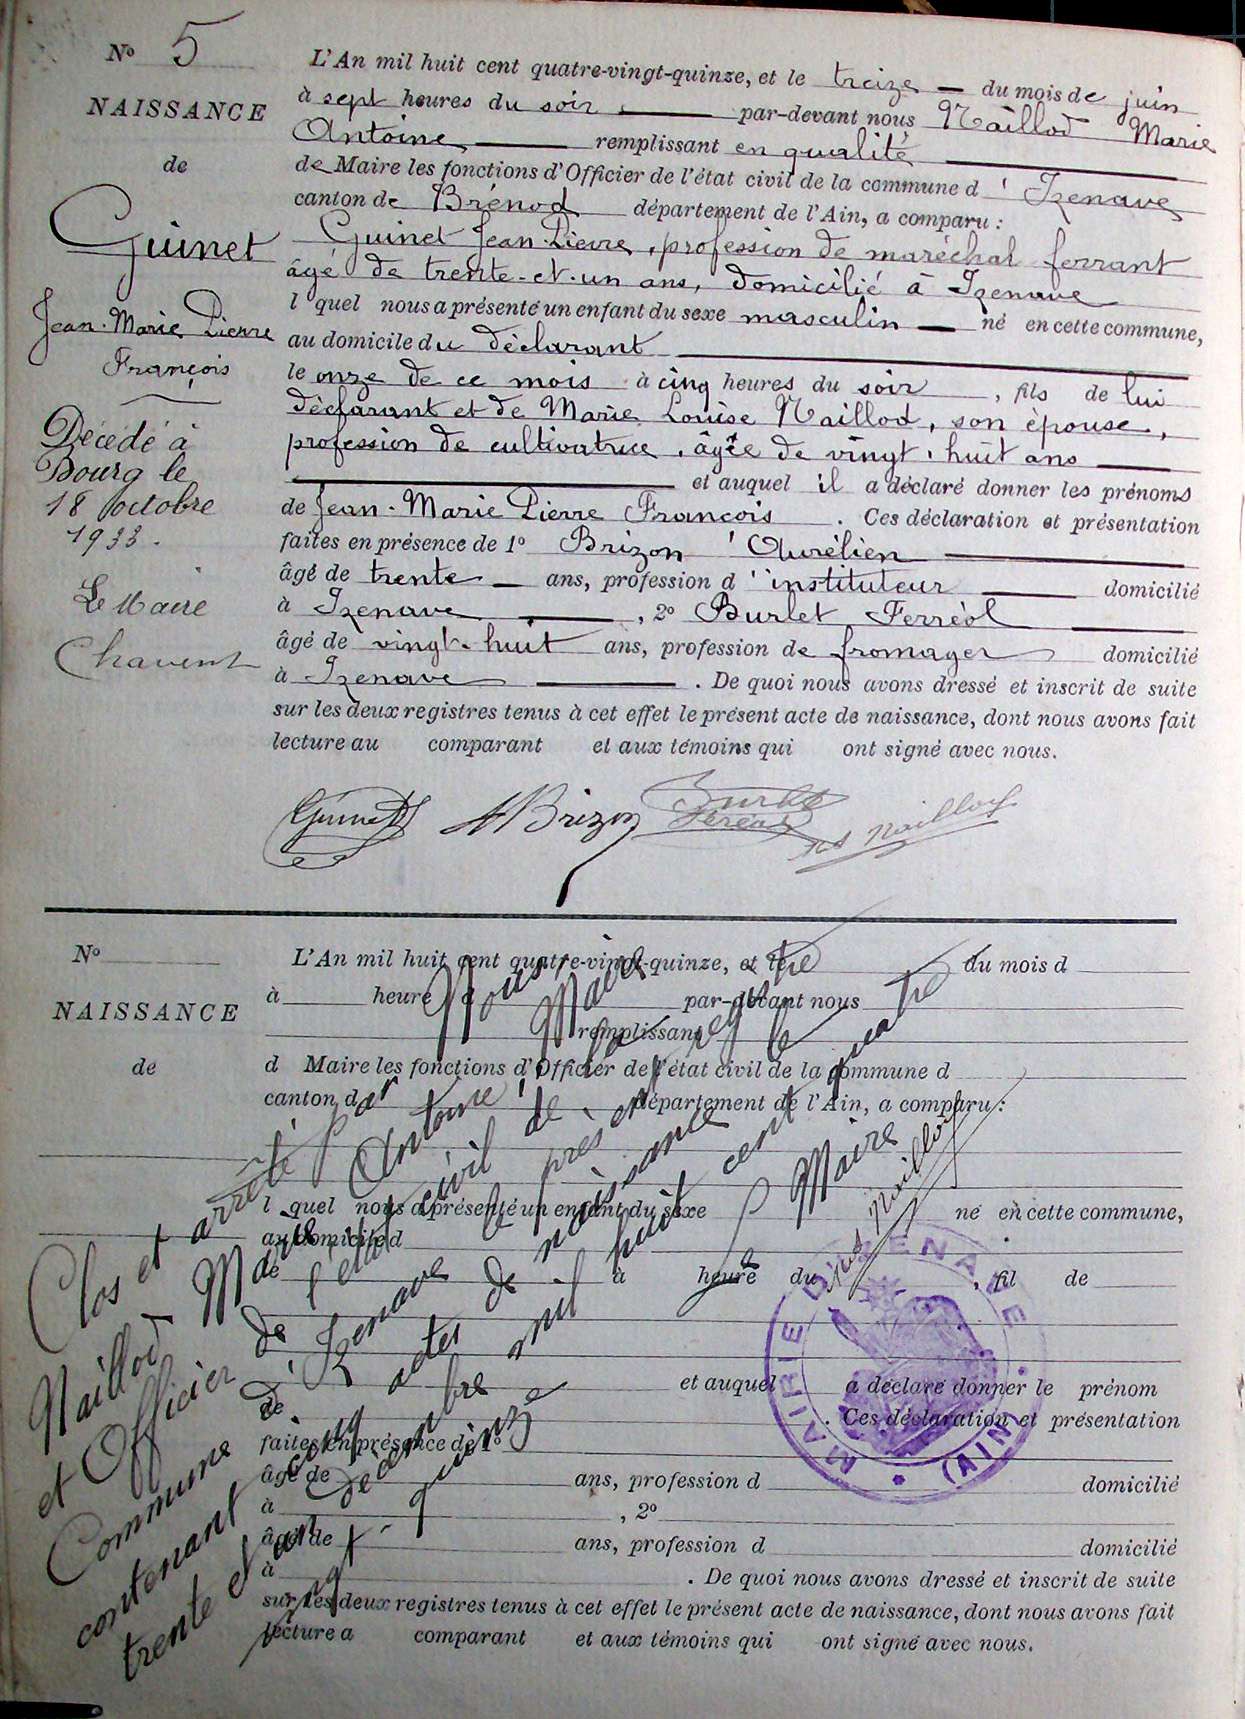 N° 5
NAISSANCE
de
Guinet
Jean-Marie Pierre
François
Décédé à
Bourg le
18 octobre
1933.
Le Maire
Chavent
L'An mil huit cent quatre-vingt-quinze, et le treize — du mois de juin
à sept heures du soir — par-devant nous Naillod Marie
Antoine — remplissant en qualité —
de Maire les fonctions d'Officier de l'état civil de la commune d'Izenave
canton de Brénod département de l'Ain, a comparu :
Guinet Jean-Pierre, profession de maréchal ferrant
âgé de trente-et-un ans, domicilié à Izenave
l quel nous a présenté un enfant du sexe masculin — né en cette commune,
au domicile du déclarant —
le onze de ce mois à cinq heures du soir, fils de lui
déclarant et de Marie Louise Naillod, son épouse,
profession de cultivatrice, âgée de vingt-huit ans —
— et auquel il a déclaré donner les prénoms
de Jean-Marie Pierre François. Ces déclaration et présentation
faites en présence de 1° Brizon Aurélien —
âgé de trente — ans, profession d'instituteur — domicilié
à Izenave —, 2° Burlet Ferréol —
âgé de vingt-huit ans, profession de fromager domicilié
à Izenave —. De quoi nous avons dressé et inscrit de suite
sur les deux registres tenus à cet effet le présent acte de naissance, dont nous avons fait
lecture au comparant et aux témoins qui ont signé avec nous.
Guinet A Brizon Burlet Naillod
Ferréol
N°
NAISSANCE
de
L'An mil huit cent quatre-vingt-quinze, et le du mois d
à heure d par-devant nous
remplissant
d Maire les fonctions d'Officier de l'état civil de la commune d
canton d département de l'Ain, a comparu :
l quel nous a présenté un enfant du sexe né en cette commune,
au domicile d
le à heure du , fil de
et auquel a déclaré donner le prénom
de . Ces déclaration et présentation
faites en présence de 1°
âgé de ans, profession d domicilié
à , 2°
âgé de ans, profession d domicilié
à . De quoi nous avons dressé et inscrit de suite
sur les deux registres tenus à cet effet le présent acte de naissance, dont nous avons fait
lecture a comparant et aux témoins qui ont signé avec nous.
Clos et arrêté par Nous
Naillod Marie Antoine, Maire
et Officier de l'état civil de la
Commune d'Izenave le présent registre
contenant cinq actes de naissance le
trente et un décembre mil huit cent quatre
vingt-quinze
Le Maire
Naillod
MAIRIE D'IZENAVE (AIN)